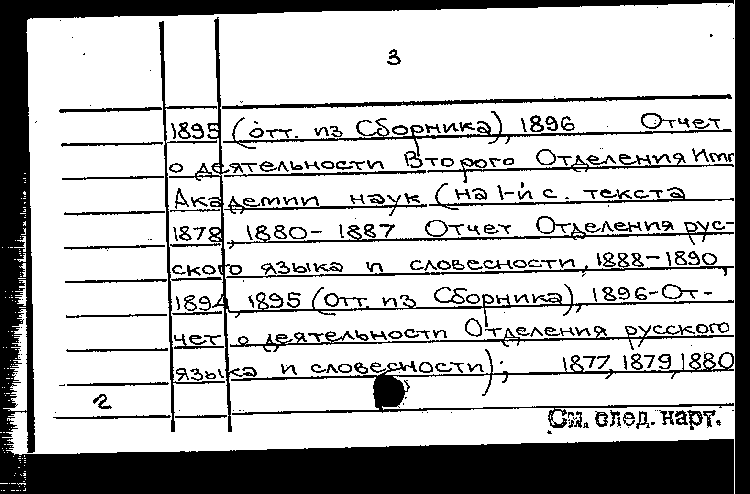 3
1895 (отт. из Сборника), 1896 Отчет
о деятельности Второго Отделения Имп
Академии наук (на 1-й с. текста
1878, 1880-1887 Отчет Отделения рус-
ского языка и словесности, 1888-1890,
1894, 1895 (отт. из Сборника), 1896-От-
чет о деятельности Отделения русского
языка и словесности); 1877, 1879, 1880
2
См. след. карт.